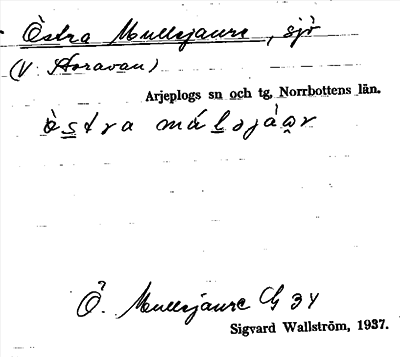 Östra Mullejaure, sjö
(V. Storavan)
Arjeplogs sn och tg, Norrbottens län.
östra
Ö. Mullejaure G 34
Sigvard Wallström, 1937.